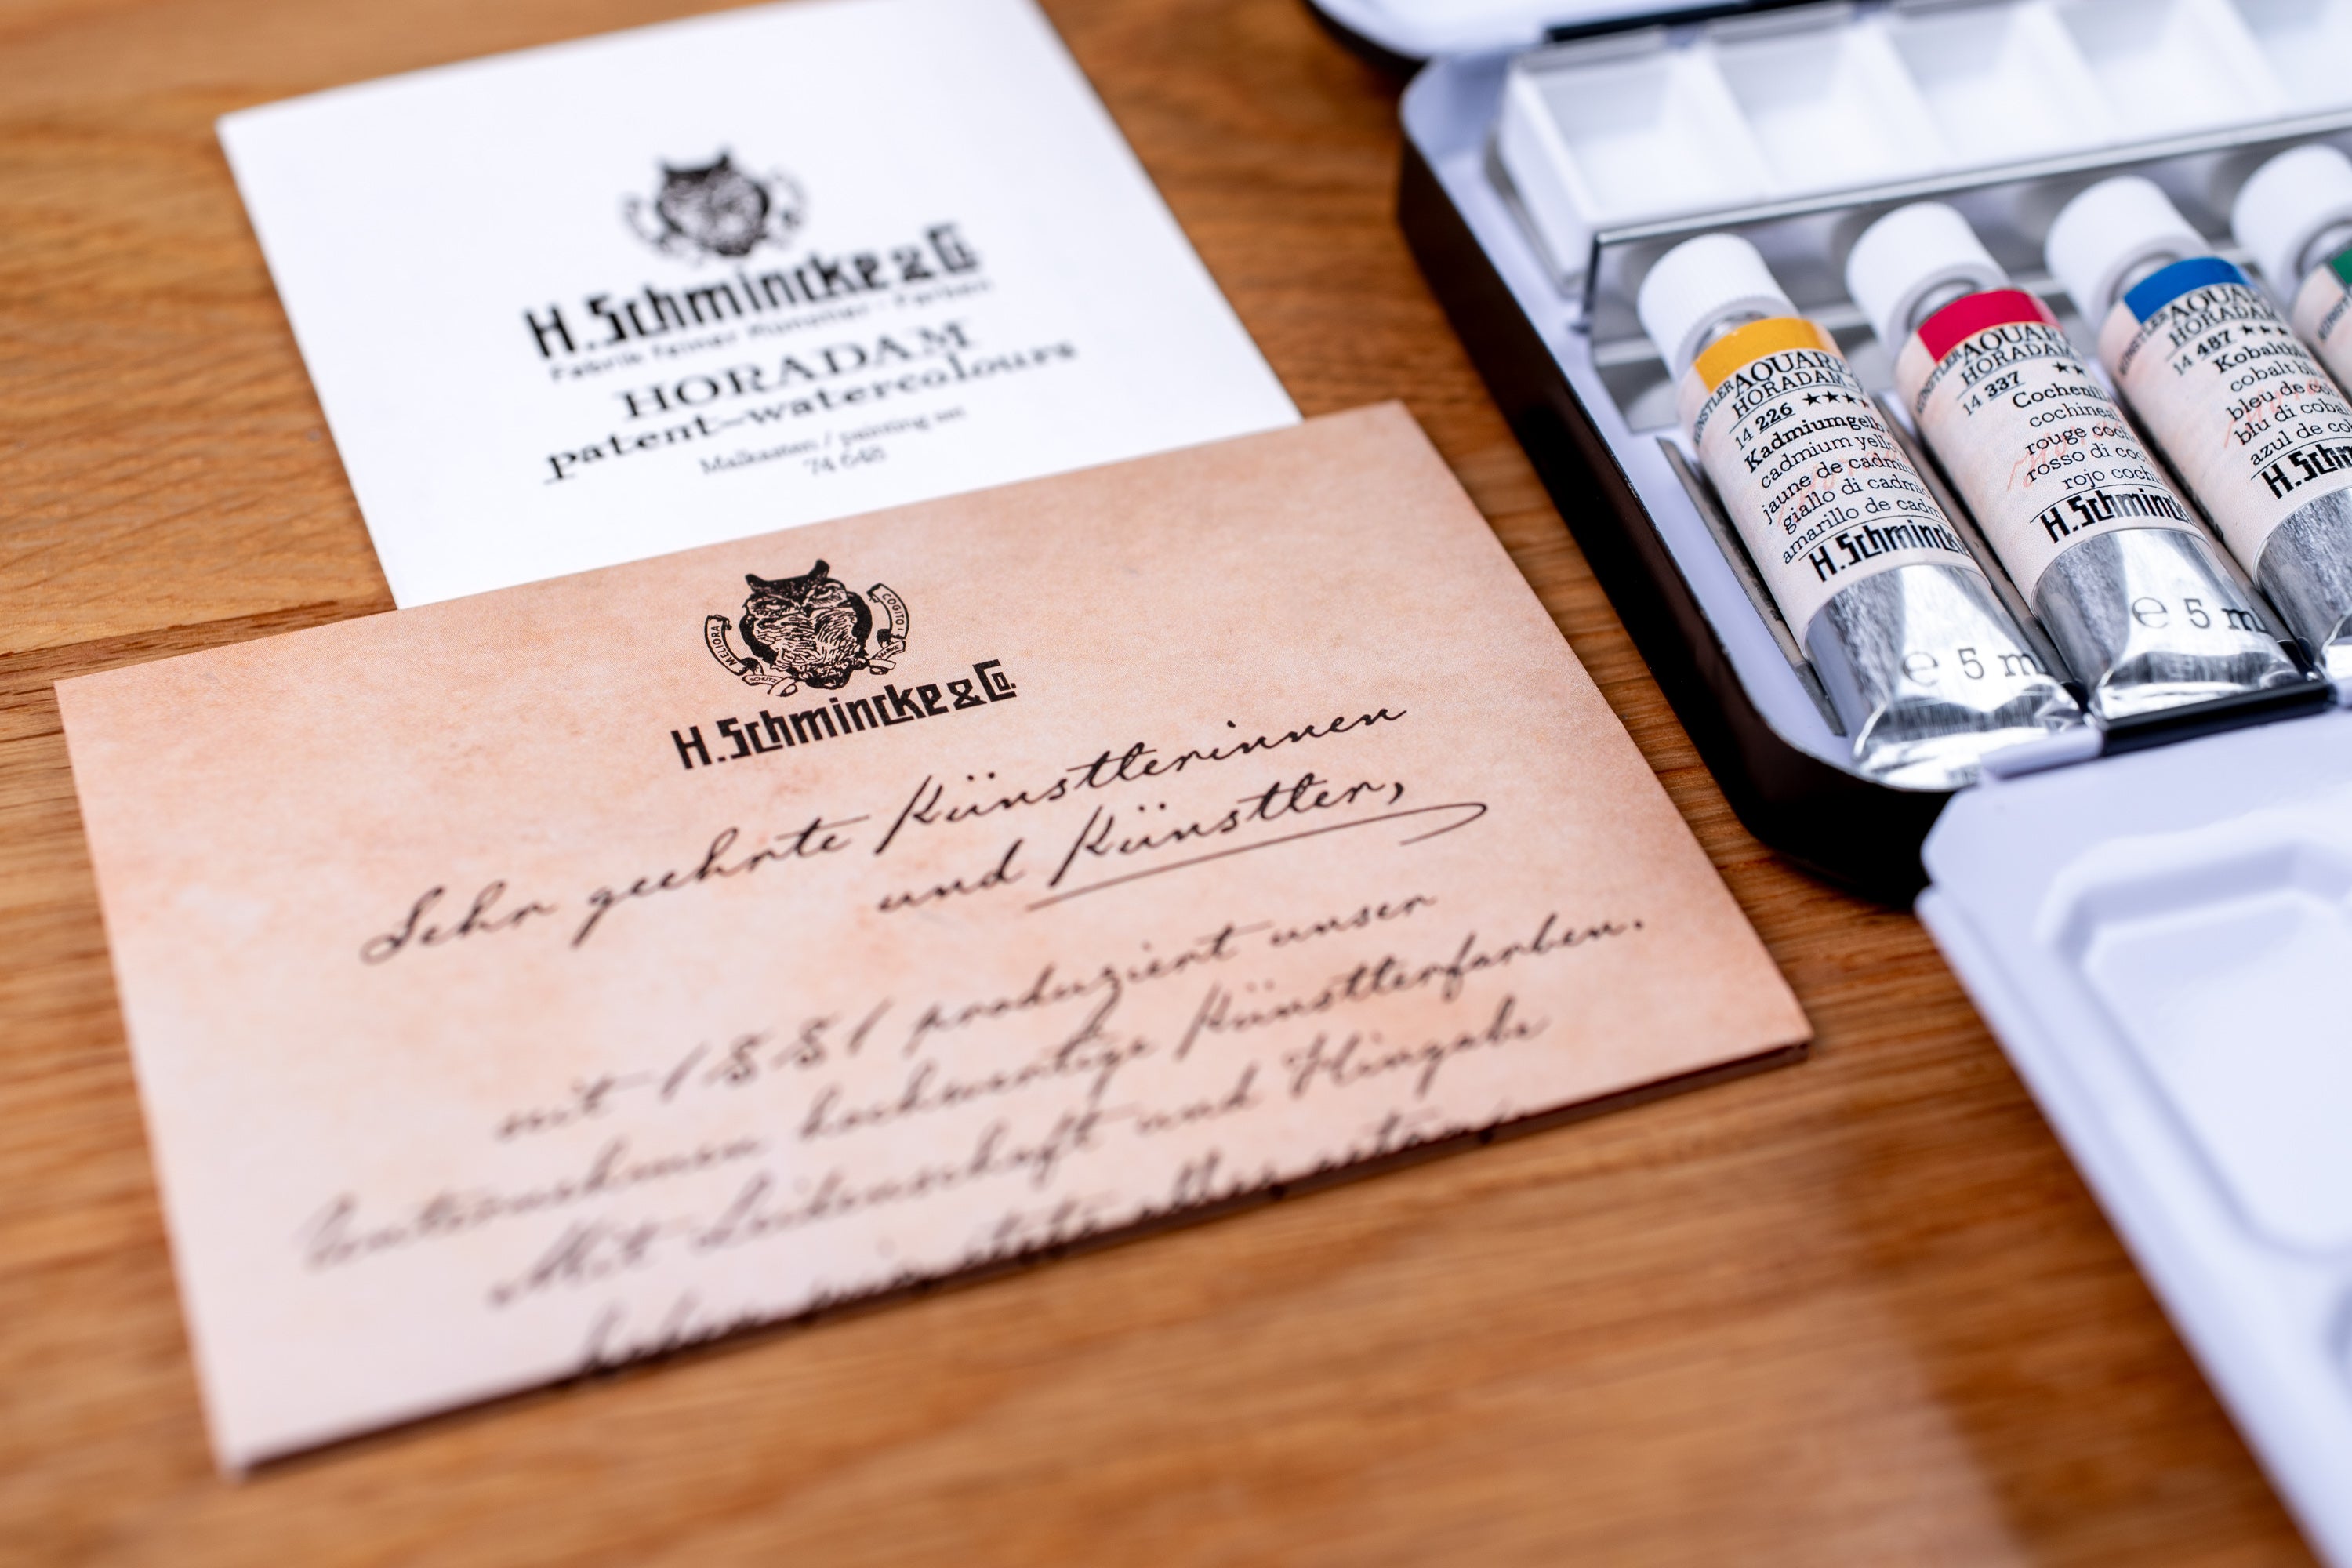 H. Schmincke & Co.
Fabrik feiner Künstler-Farben
HORADAM
patent-watercolours
Malkasten / painting set
74 648
MELIORA
COGITO
SCHUTZ
H. Schmincke & Co.
Sehr geehrte Künstlerinnen
und Künstler,
seit 1881 produziert unser
Unternehmen hochwertige Künstlerfarben.
Mit Leidenschaft und Hingabe
haben wir stets alles
KÜNSTLER AQUARE
HORADAM
14 226 ★★★★
Kadmiumgelb
cadmium yello
jaune de cadmi
giallo di cadmi
amarillo de cadm
H. Schmincke
e 5 m
KÜNSTLER AQUAR
HORADAM
14 337 ★★
Cochenil
cochineal
rouge coch
rosso di coc
rojo cochi
H. Schminck
e 5 ml
KÜNSTLER AQUA
HORADAM
14 487 ★★★
Kobaltbl
cobalt bl
bleu de cob
blu di coba
azul de co
H. Schm